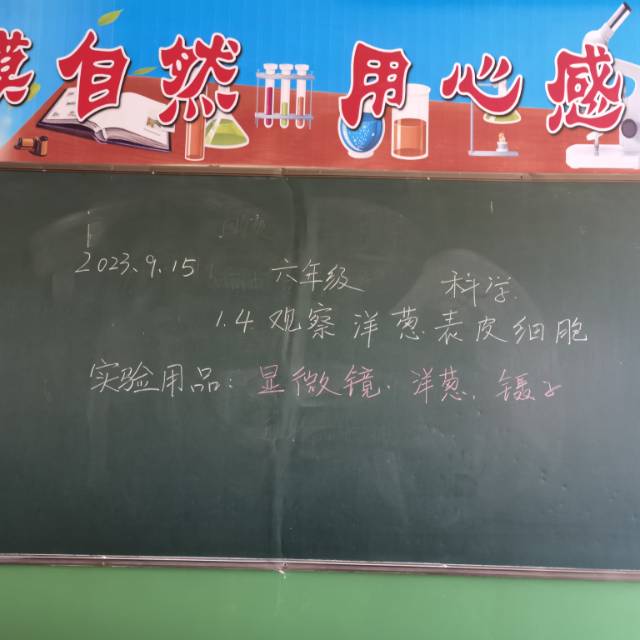 自然 用心感
2023.9.15 六年级 科学
1.4 观察洋葱表皮细胞
实验用品：显微镜、洋葱、镊子